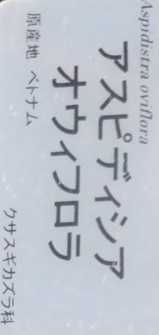 Aspidistra oviflora
アスピディシア
オウィフロラ
原産地 ベトナム
クサスギカズラ科